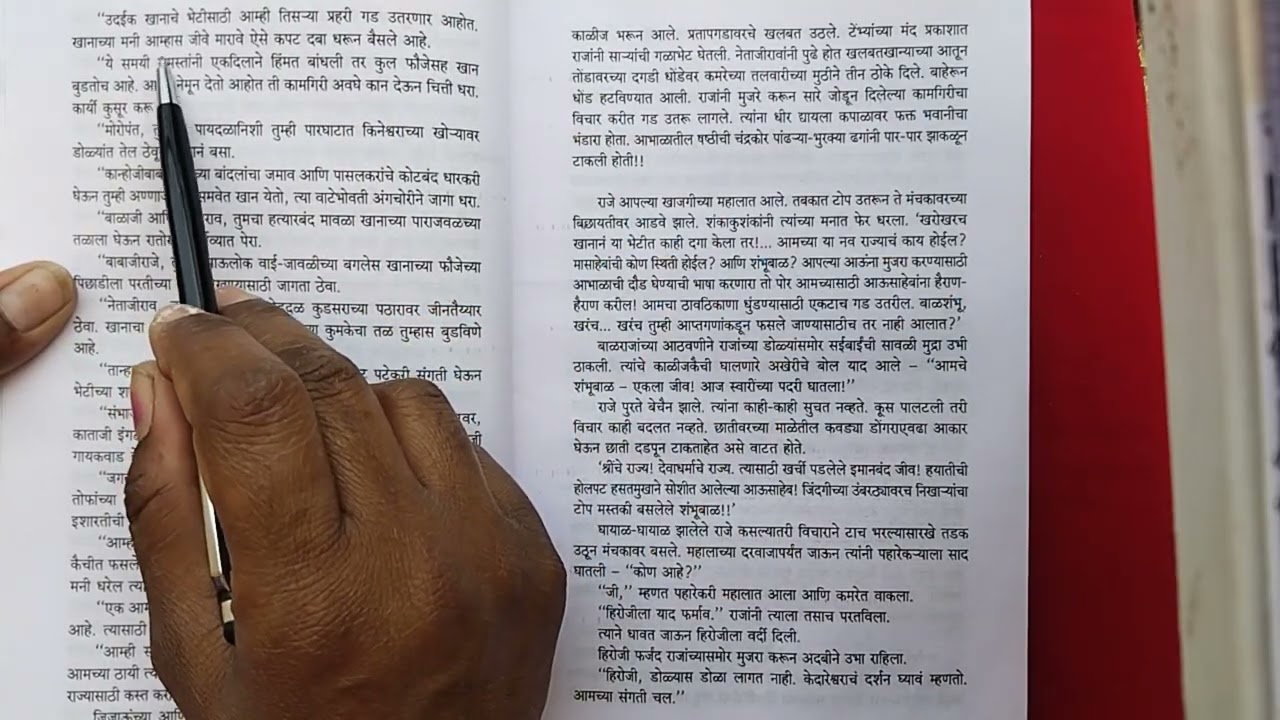 “उदईक खानाचे भेटीसाठी आम्ही तिसऱ्या प्रहरी गड उतरणार आहोत.
खानाच्या मनी आम्हास जीवे मारावे ऐसे कपट दबा धरून बैसले आहे.
“ये समयी एकदिलाने हिंमत बांधली तर कुल फौजेसह खान
बुडतोच आहे. नेमून देतो आहोत ती कामगिरी अवघे कान देऊन चित्ती धरा.
कार्यी कुसूर
“मोरोपंत, पायदळानिशी तुम्ही पारघाटात किनेश्वराच्या खोऱ्यावर
डोळ्यांत तेल बसा.
बांदलांचा जमाव आणि पासलकरांचे कोटबंद धारकरी
घेऊन तुम्ही समवेत खान येतो, त्या वाटेभोवती अंगचोरीने जागा धरा.
“बाळाजी तुमचा हत्यारबंद मावळा खानाच्या पाराजवळच्या
तळाला घेऊन पेरा.
“बाबाजीराजे, वाई-जावळीच्या बगलेस खानाच्या फौजेच्या
पिछाडीला परतीच्या जागता ठेवा.
“नेताजीराव कुडसराच्या पठारावर जीनतैय्यार
ठेवा. खानाचा कुमकेचा तळ तुम्हास बुडविणे
आहे.
पटेकरी संगती घेऊन
भेटीच्या
काताजी
गायकवाड
तोफांच्या
इशारतीची
कैचीत
मनी धरेल
“एक
आहे. त्यासाठी
“आम्ही
आमच्या ठायी
राज्यासाठी कस्त
जिजाऊंच्या
काळीज भरून आले. प्रतापगडावरचे खलबत उठले. टेंभ्यांच्या मंद प्रकाशात
राजांनी साऱ्यांची गळाभेट घेतली. नेताजीरावांनी पुढे होत खलबतखान्याच्या आतून
तोंडावरच्या दगडी धोंडेवर कमरेच्या तलवारीच्या मुठीने तीन ठोके दिले. बाहेरून
धोंड हटविण्यात आली. राजांनी मुजरे करून सारे जोडून दिलेल्या कामगिरीचा
विचार करीत गड उतरू लागले. त्यांना धीर द्यायला कपाळावर फक्त भवानीचा
भंडारा होता. आभाळातील षष्ठीची चंद्रकोर पांढऱ्या-भुरक्या ढगांनी पार-पार झाकळून
टाकली होती!!
राजे आपल्या खाजगीच्या महालात आले. तबकात टोप उतरून ते मंचकावरच्या
बिछायतीवर आडवे झाले. शंकाकुशंकांनी त्यांच्या मनात फेर धरला. ‘खरोखरच
खानानं या भेटीत काही दगा केला तर!... आमच्या या नव राज्याचं काय होईल?
मासाहेबांची कोण स्थिती होईल? आणि शंभूबाळ? आपल्या आऊंना मुजरा करण्यासाठी
आभाळाची दौड घेण्याची भाषा करणारा तो पोर आमच्यासाठी आऊसाहेबांना हैराण-
हैराण करील! आमचा ठावठिकाणा धुंडण्यासाठी एकटाच गड उतरील. बाळशंभू,
खरंच... खरंच तुम्ही आप्तगणांकडून फसले जाण्यासाठीच तर नाही आलात?’
बाळराजांच्या आठवणीने राजांच्या डोळ्यांसमोर सईबाईंची सावळी मुद्रा उभी
ठाकली. त्यांचे काळीजकैची घालणारे अखेरीचे बोल याद आले – “आमचे
शंभूबाळ – एकला जीव! आज स्वारींच्या पदरी घातला!”
राजे पुरते बेचैन झाले. त्यांना काही-काही सुचत नव्हते. कूस पालटली तरी
विचार काही बदलत नव्हते. छातीवरच्या माळेतील कवड्या डोंगराएवढा आकार
घेऊन छाती दडपून टाकताहेत असे वाटत होते.
‘श्रींचे राज्य! देवाधर्माचे राज्य. त्यासाठी खर्ची पडलेले इमानबंद जीव! हयातीची
होलपट हसतमुखाने सोशीत आलेल्या आऊसाहेब! जिंदगीच्या उंबरठ्यावरच निखाऱ्यांचा
टोप मस्तकी बसलेले शंभूबाळ!!’
घायाळ-घायाळ झालेले राजे कसल्यातरी विचाराने टाच भरल्यासारखे तडक
उठून मंचकावर बसले. महालाच्या दरवाजापर्यंत जाऊन त्यांनी पहारेकऱ्याला साद
घातली – “कोण आहे?”
“जी,” म्हणत पहारेकरी महालात आला आणि कमरेत वाकला.
“हिरोजीला याद फर्माव.” राजांनी त्याला तसाच परतविला.
त्याने धावत जाऊन हिरोजीला वर्दी दिली.
हिरोजी फर्जंद राजांच्यासमोर मुजरा करून अदबीने उभा राहिला.
“हिरोजी, डोळ्यास डोळा लागत नाही. केदारेश्वराचं दर्शन घ्यावं म्हणतो.
आमच्या संगती चल.”